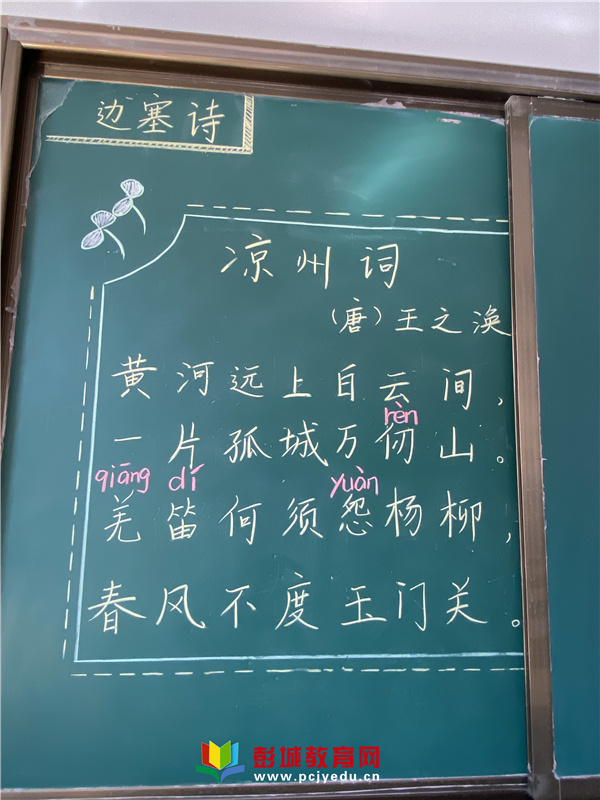 边塞诗
凉州词
（唐）王之涣
黄河远上白云间，
rèn
一片孤城万仞山。
qiāng dí yuàn
羌笛何须怨杨柳，
春风不度玉门关。
彭城教育网
www.pcjyedu.cn